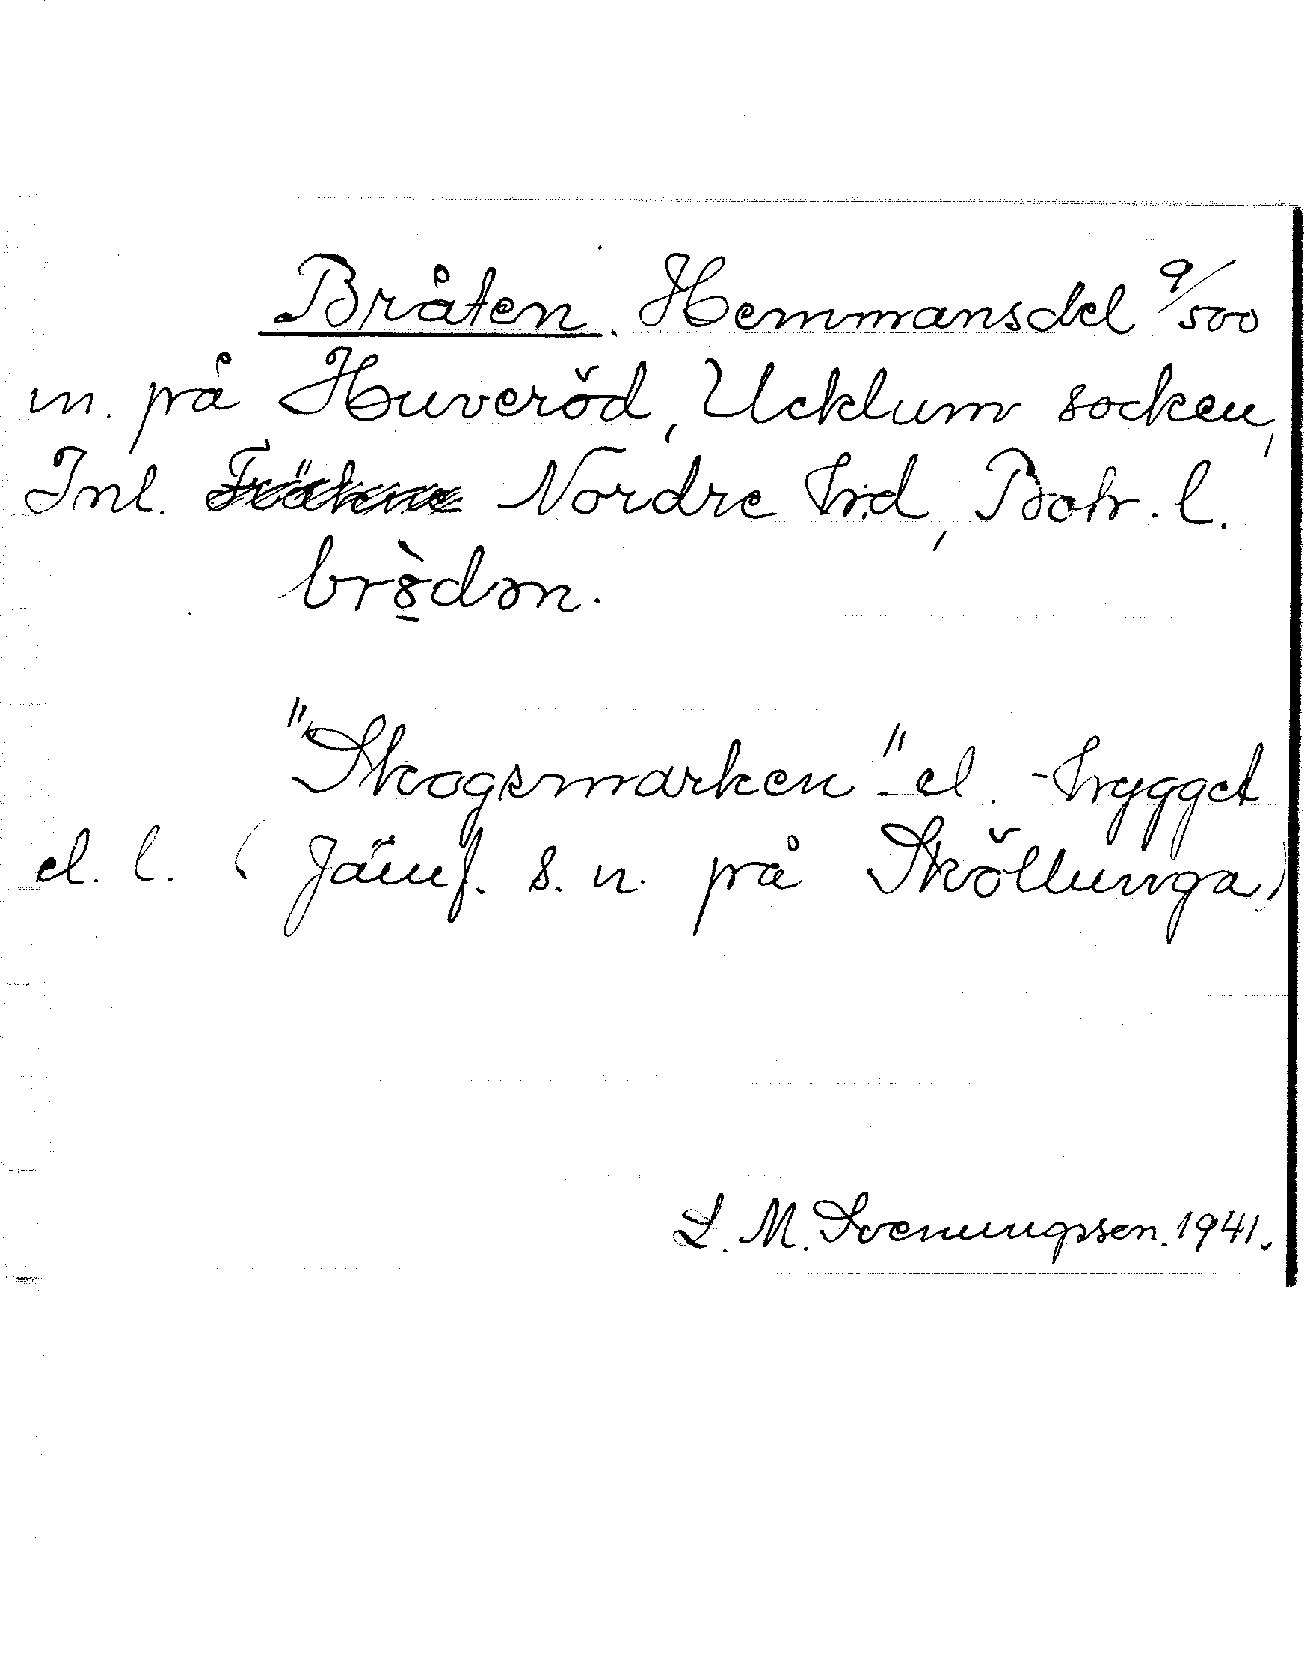 Bråten. Hemmansdel 9/500
m. på Huveröd, Ucklum socken,
Inl. Nordre hd, Boh. l.
br8̱̀dən.
"Skogsmarken" el. -hygget
el. l. (Jämf. s. n. på Sköllunga)
S. M. Svenungsson. 1941.